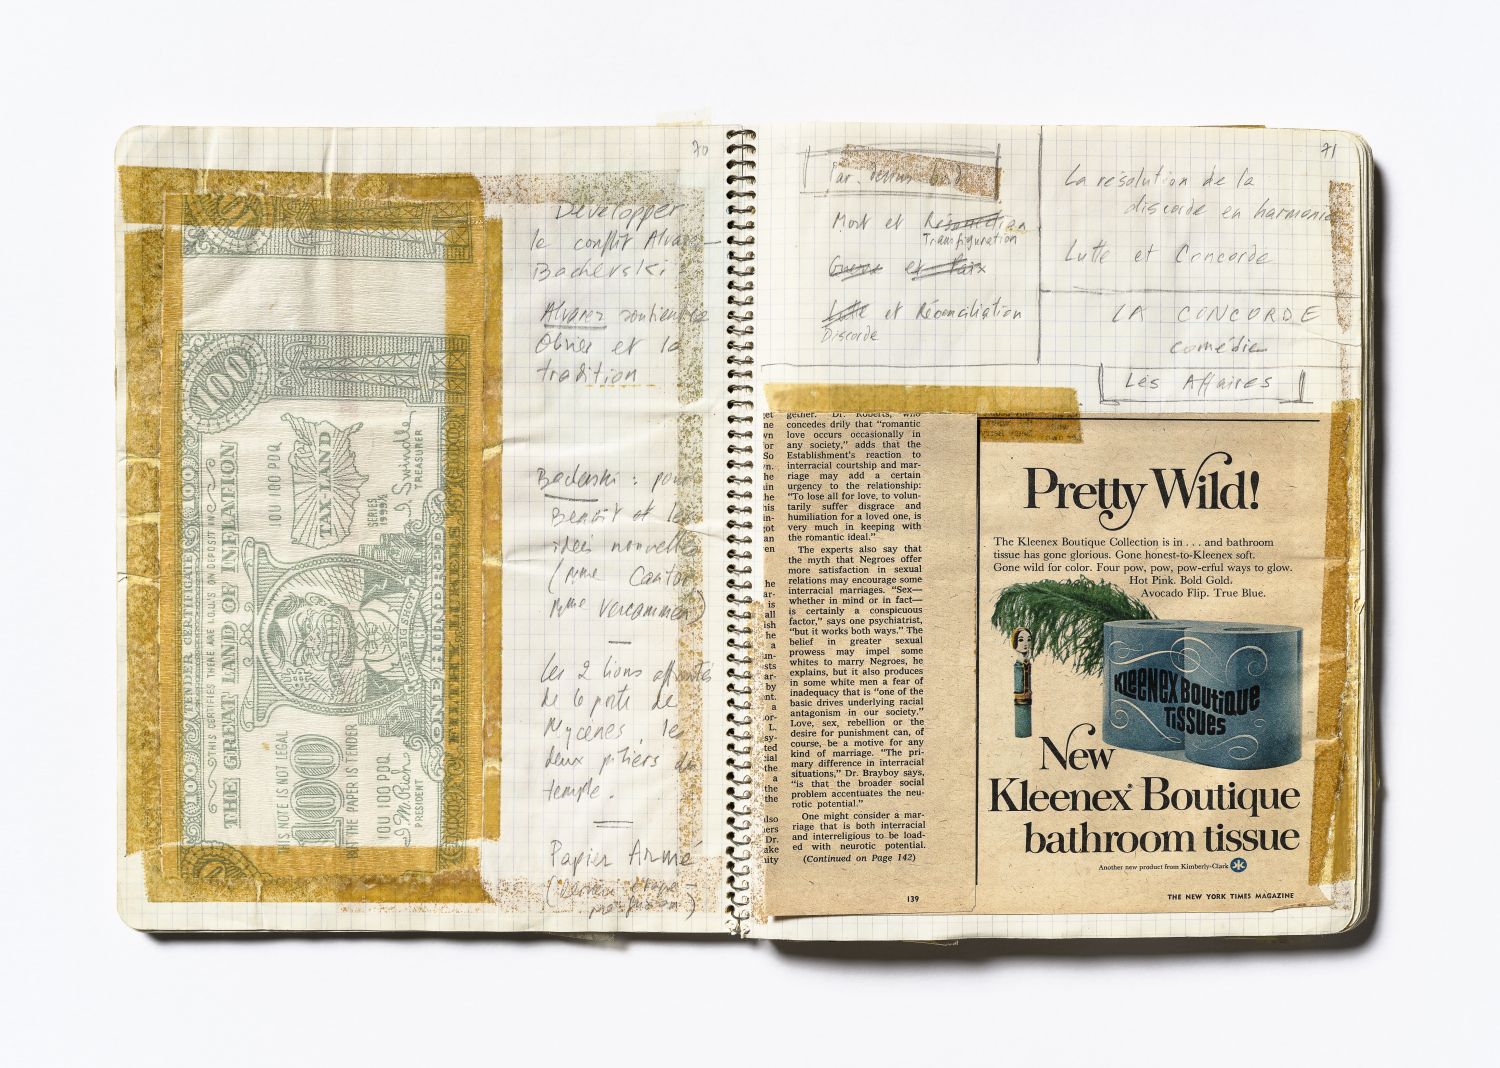 70
Développer
le conflit Alvarez
Baderski
Alvarez soutient
Obrier et la
tradition
Baderski : pour
Benoît et les
idées nouvelles
(Mme Cantor
Mme Vercammen)
Les 2 lions affrontés
de la porte de
Mycènes, le
deux piliers du
temple.
Papier Armé
100
TAX-LAND
IOU 100 PDQ
SERIES
I. Swindle
TREASURER
THIS CERTIFIES THERE ARE I.O.U.'S ON DEPOSIT IN
THE GREAT LAND OF INFLATION
ONE HUNDRED
THIS NOTE IS NOT LEGAL
BUT THE PAPER IS TENDER
100
IOU 100 PDQ
PRESIDENT
71
Par dessus
Mort et Résurrection
Transfiguration
Guerre et Paix
Lutte et Réconciliation
Discorde
La résolution de la
discorde en harmonie
Lutte et Concorde
LA CONCORDE
comédie
Les Affaires
gether. Dr. Roberts, who
concedes drily that “romantic
love occurs occasionally in
any society,” adds that the
Establishment's reaction to
interracial courtship and mar-
riage may add a certain
urgency to the relationship:
“To lose all for love, to volun-
tarily suffer disgrace and
humiliation for a loved one, is
very much in keeping with
the romantic ideal.”
The experts also say that
the myth that Negroes offer
more satisfaction in sexual
relations may encourage some
interracial marriages. “Sex—
whether in mind or in fact—
is certainly a conspicuous
factor,” says one psychiatrist,
“but it works both ways.” The
belief in greater sexual
prowess may impel some
whites to marry Negroes, he
explains, but it also produces
in some white men a fear of
inadequacy that is “one of the
basic drives underlying racial
antagonism in our society.”
Love, sex, rebellion or the
desire for punishment can, of
course, be a motive for any
kind of marriage. “The pri-
mary difference in interracial
situations,” Dr. Brayboy says,
“is that the broader social
problem accentuates the neu-
rotic potential.”
One might consider a mar-
riage that is both interracial
and interreligious to be load-
ed with neurotic potential.
(Continued on Page 142)
139
Pretty Wild!
The Kleenex Boutique Collection is in . . . and bathroom
tissue has gone glorious. Gone honest-to-Kleenex soft.
Gone wild for color. Four pow, pow, pow-erful ways to glow.
Hot Pink. Bold Gold.
Avocado Flip. True Blue.
Kleenex Boutique
Tissues
New
Kleenex® Boutique
bathroom tissue
Another new product from Kimberly-Clark
THE NEW YORK TIMES MAGAZINE